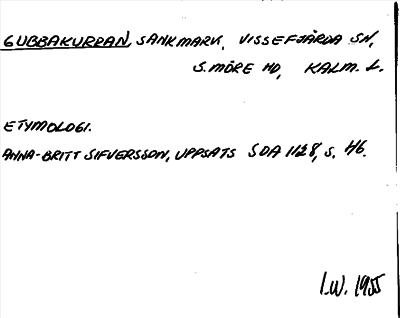 GUBBAKURRAN, SANKMARK, VISSEFJÄRDA SN,
S. MÖRE HD, KALM. L.
ETYMOLOGI.
ANNA-BRITT SIFVERSSON, UPPSATS SDA 1128, S. 46.
I.W. 1955